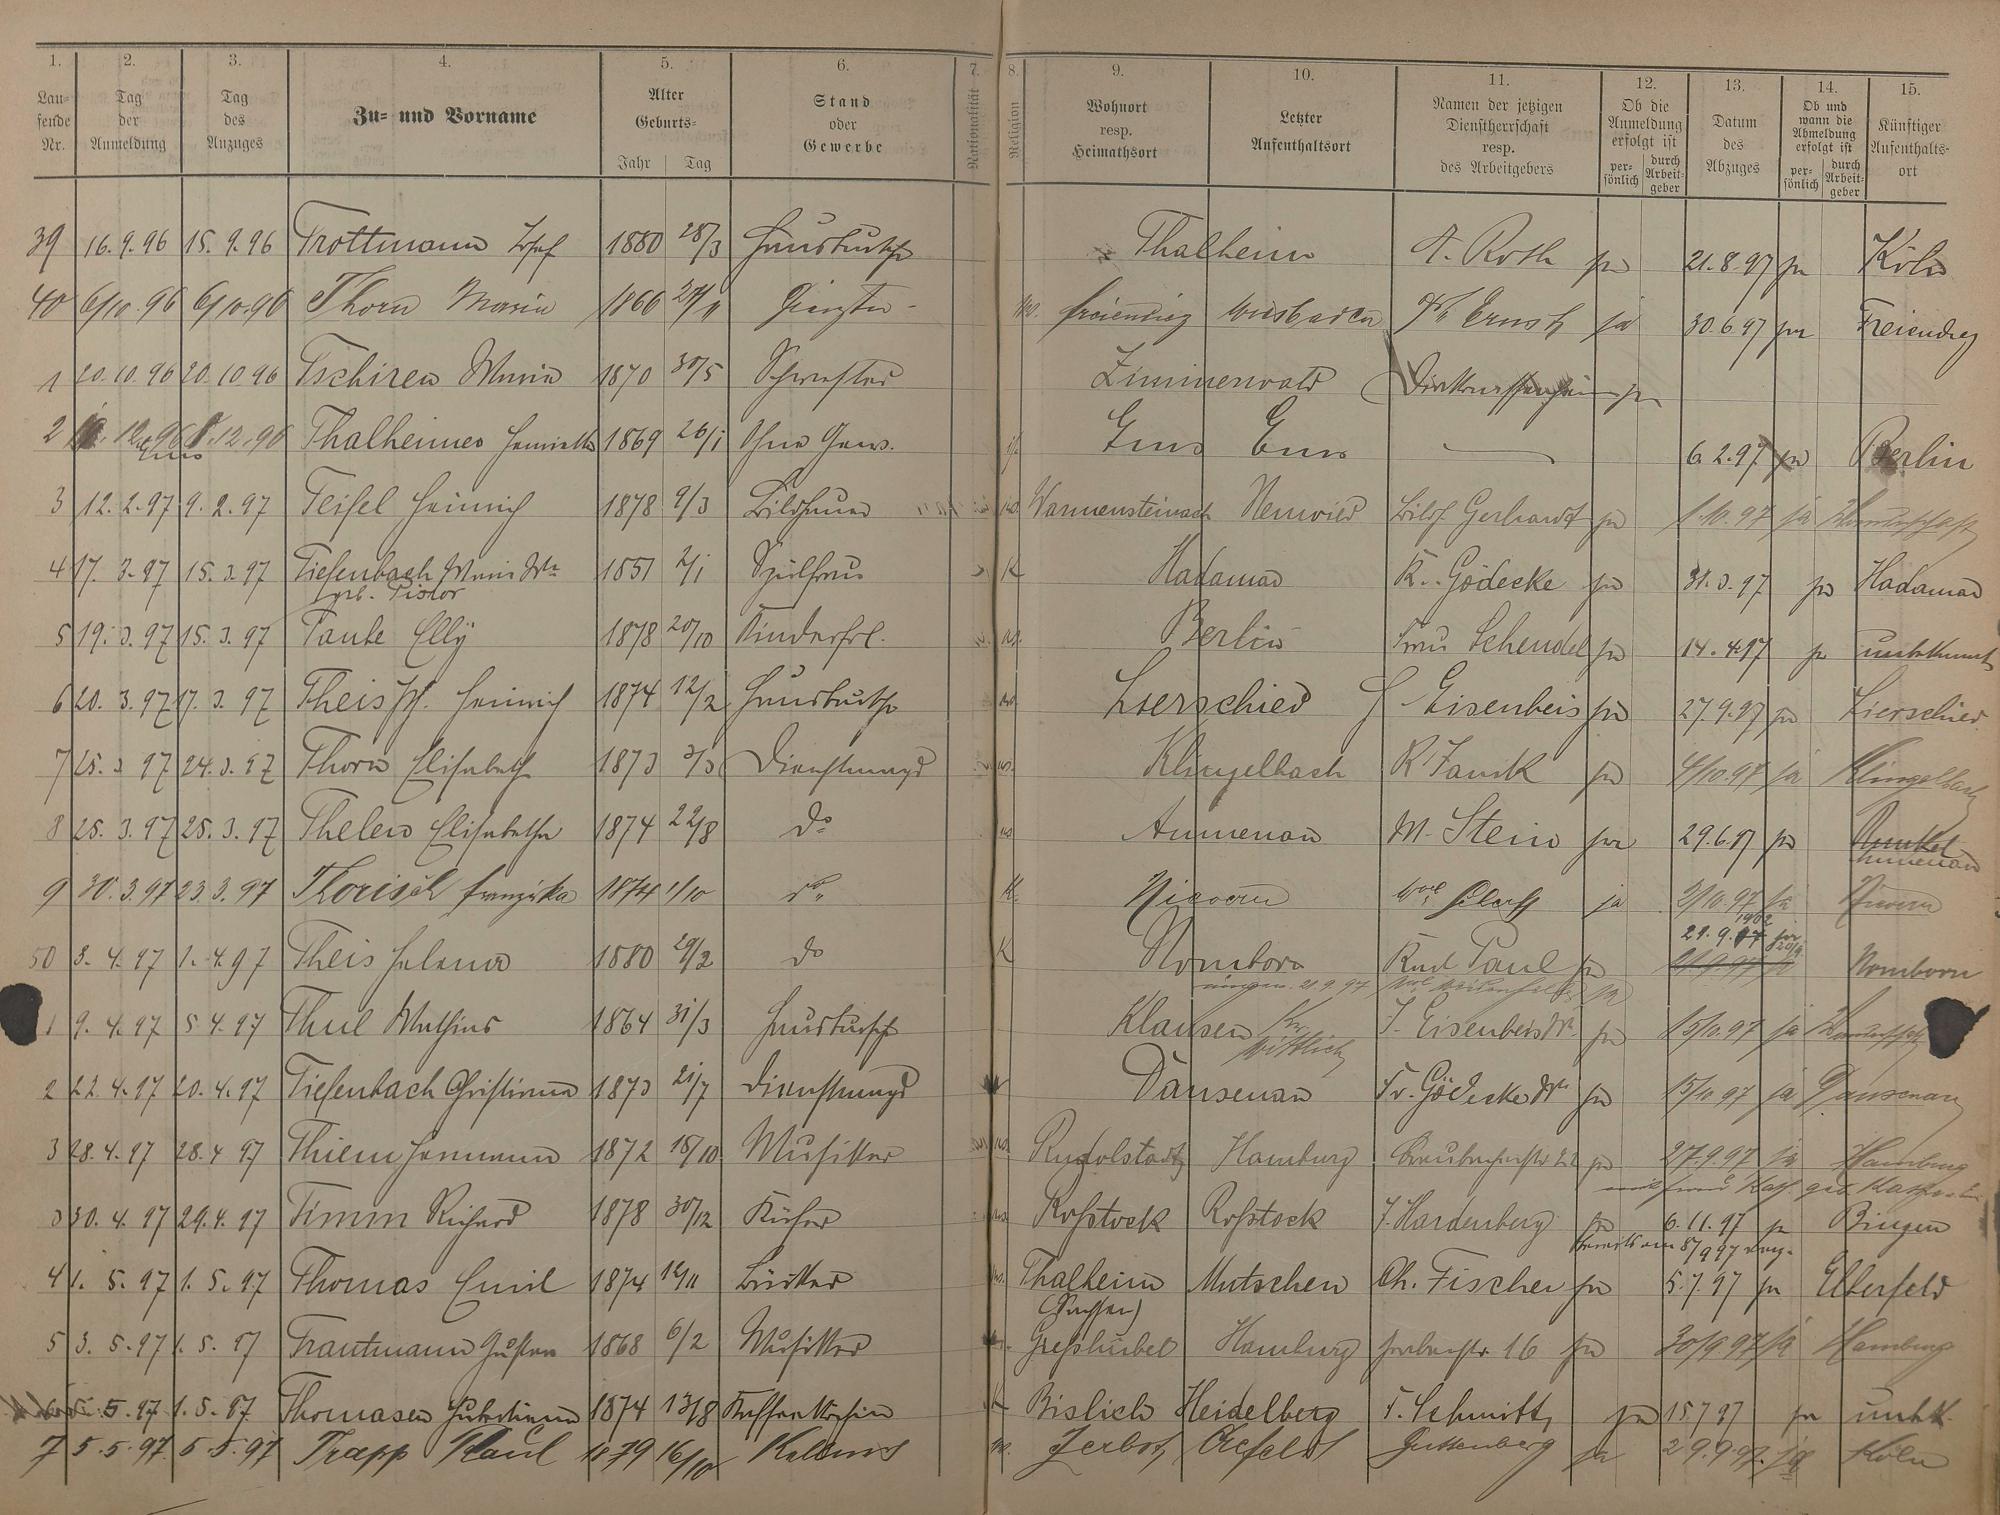 1. 2. 3. 4. 5. 6. 7. 8. 9. 10. 11. 12. 13. 14. 15.
Laufende Nr. | Tag der Anmeldung | Tag des Anzuges | Zu- und Vorname | Alter Geburts- Jahr | Tag | Stand oder Gewerbe | Nationalität | Religion | Wohnort resp. Heimathsort | Letzter Aufenthaltsort | Namen der jetzigen Dienstherrschaft resp. des Arbeitgebers | Ob die Anmeldung erfolgt ist persönlich | durch Arbeitgeber | Datum des Abzuges | Ob und wann die Abmeldung erfolgt ist persönlich | durch Arbeitgeber | Künftiger Aufenthaltsort
39 16.9.96 15.9.96 Trottmann Josef 1880 28/3 Hausbursche Thalheim A. Roth ja 21.8.97 ja Köln
40 6/10.96 6/10.96 Thorn Maria 1866 Wiesbaden Ernst ja 30.6.97 ja Freiendiez
1 20.10.96 20.10.96 Tschiren Maria 1870 30/5 Schwester Zimmerwald ja
2 12.96 12.96 Thalheimer Henriette 1869 26/1 Ohne Gew. Ems Ems 6.2.97 ja Berlin
3 12.2.97 9.2.97 Teisel Heinrich 1878 9/3 Bildhauer Warmensteinach Neuwied Bildh. Gerhardt ja 1.10.97 ja
4 17.3.97 15.3.97 Tiefenbach Maria Ww. 1851 2/1 Spülfrau K Hadamar R. Gödecke ja 31.3.97 ja Hadamar
geb. Pistor
5 19.3.97 15.3.97 Taube Elly 1878 20/10 Kinderfrl. Berlin Frau Schendel ja 14.4.97 ja unbekannt
6 20.3.97 17.3.97 Theis W. Heinrich 1874 12/2 Hausbursche Lierschied Eisenbeis ja 27.9.97 ja Lierschied
7 25.3.97 24.3.97 Thorn Elisabeth 1873 3/3 Dienstmagd Klingelbach ja 4/10.97 ja Klingelbach
8 25.3.97 25.3.97 Thelen Elisabetha 1874 22/8 do Aumenau M. Stein ja 29.6.97 ja Runkel
Aumenau
9 30.3.97 23.3.97 Thorisch Franziska 1874 1/10 do K. Nievern ja 2/10.97 ja Nievern
50 3.4.97 1.4.97 Theis Helena 1880 29/2 do K Nomborn Rud Paul ja 21.9.97 Nomborn
1 9.4.97 5.4.97 Thul Mathias 1864 31/3 Hausbursche Klausen Kr. Wittlich J. Eisenbeis Ww ja 15/10.97 ja
2 22.4.97 20.4.97 Tiefenbach Christiane 1873 21/7 Dienstmagd Dausenau Fr. Gödecke Ww ja 15/10 97 ja Dausenau
3 28.4.97 28.4.97 Thiem Hermann 1872 18/10 Musiker Rudolstadt Hamburg ja 27.9.97 ja Hamburg
3 30.4.97 29.4.97 Timm Richard 1878 30/12 Küfer Roßtock Roßtock J. Hardenberg ja 6.11.97 ja Bingen
4 1.5.97 1.5.97 Thomas Emil 1874 Bäcker Thalheim Mutschen Ch. Fischer ja 5.7.97 ja Elberfeld
(Sachsen)
5 3.5.97 1.5.97 Trautmann Gustav 1868 6/2 Musiker Greßhübel Hamburg 16 ja 30/9 97 ja Hamburg
6 5.5.97 1.5.97 Thomasen Hubertina 1874 13/8 Kaffeeköchin K Bislich Heidelberg F. Schmitt ja 15.7.97 ja unbk.
7 5.5.97 5.5.97 Trapp Paul 1879 16/10 Kellner Zerbst Crefeld Guttenberg ja 29.9.97 ja Köln